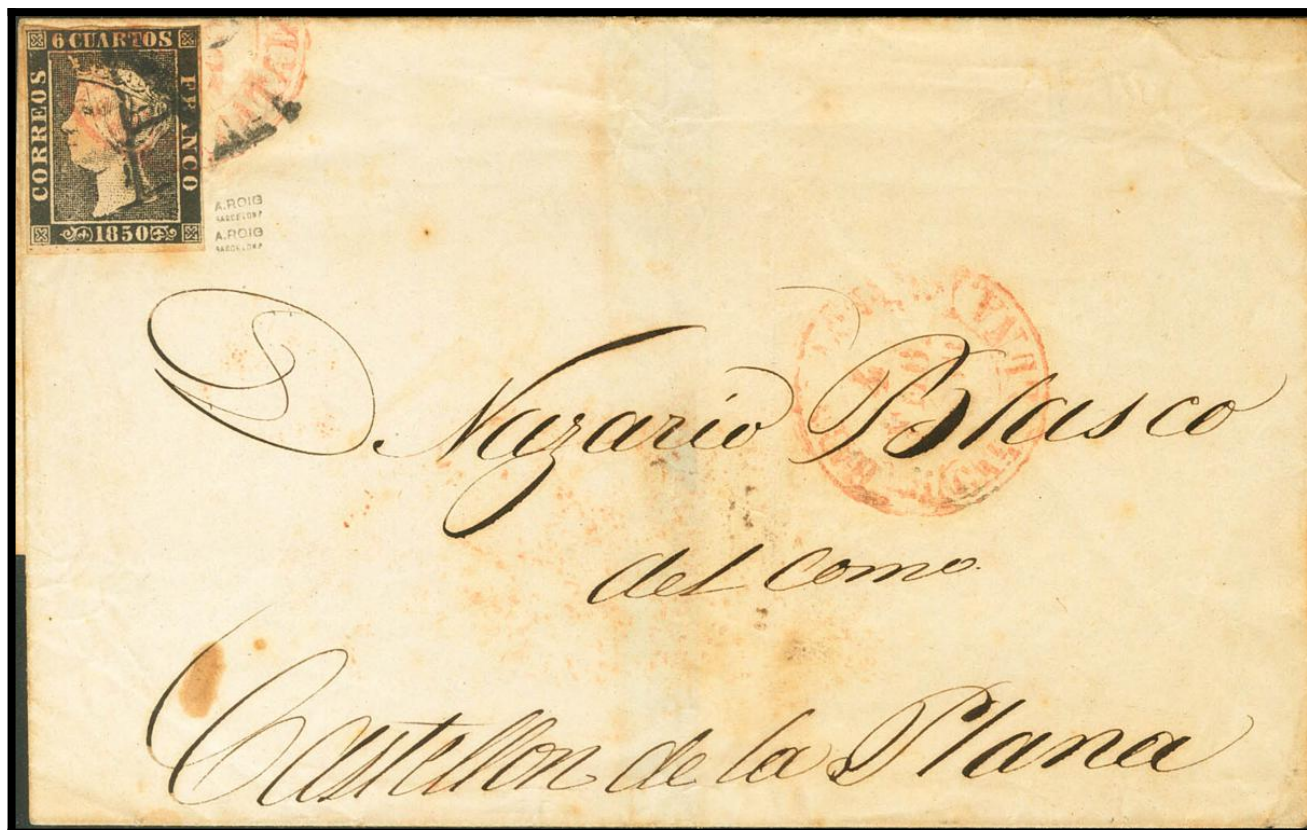 6 CUARTOS
CORREOS
FRANCO
1850
A.ROIG
BARCELONA
A.ROIG
BARCELONA
D. Nazario Blasco
del Como
Castellon de la Plana